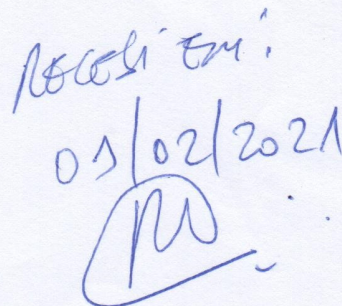 RECEBI EM:
01/02/2021